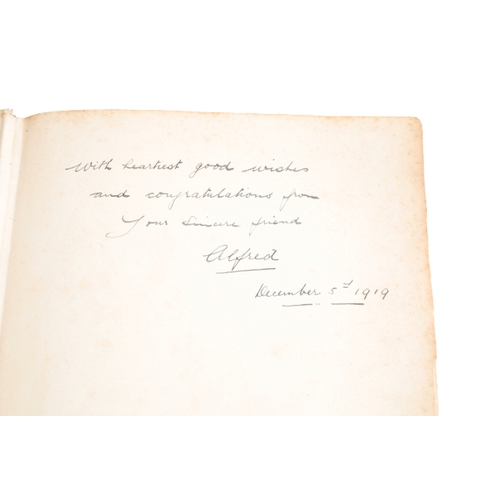 With heartiest good wishes
and congratulations from
Your sincere friend
Alfred
December 5th 1919